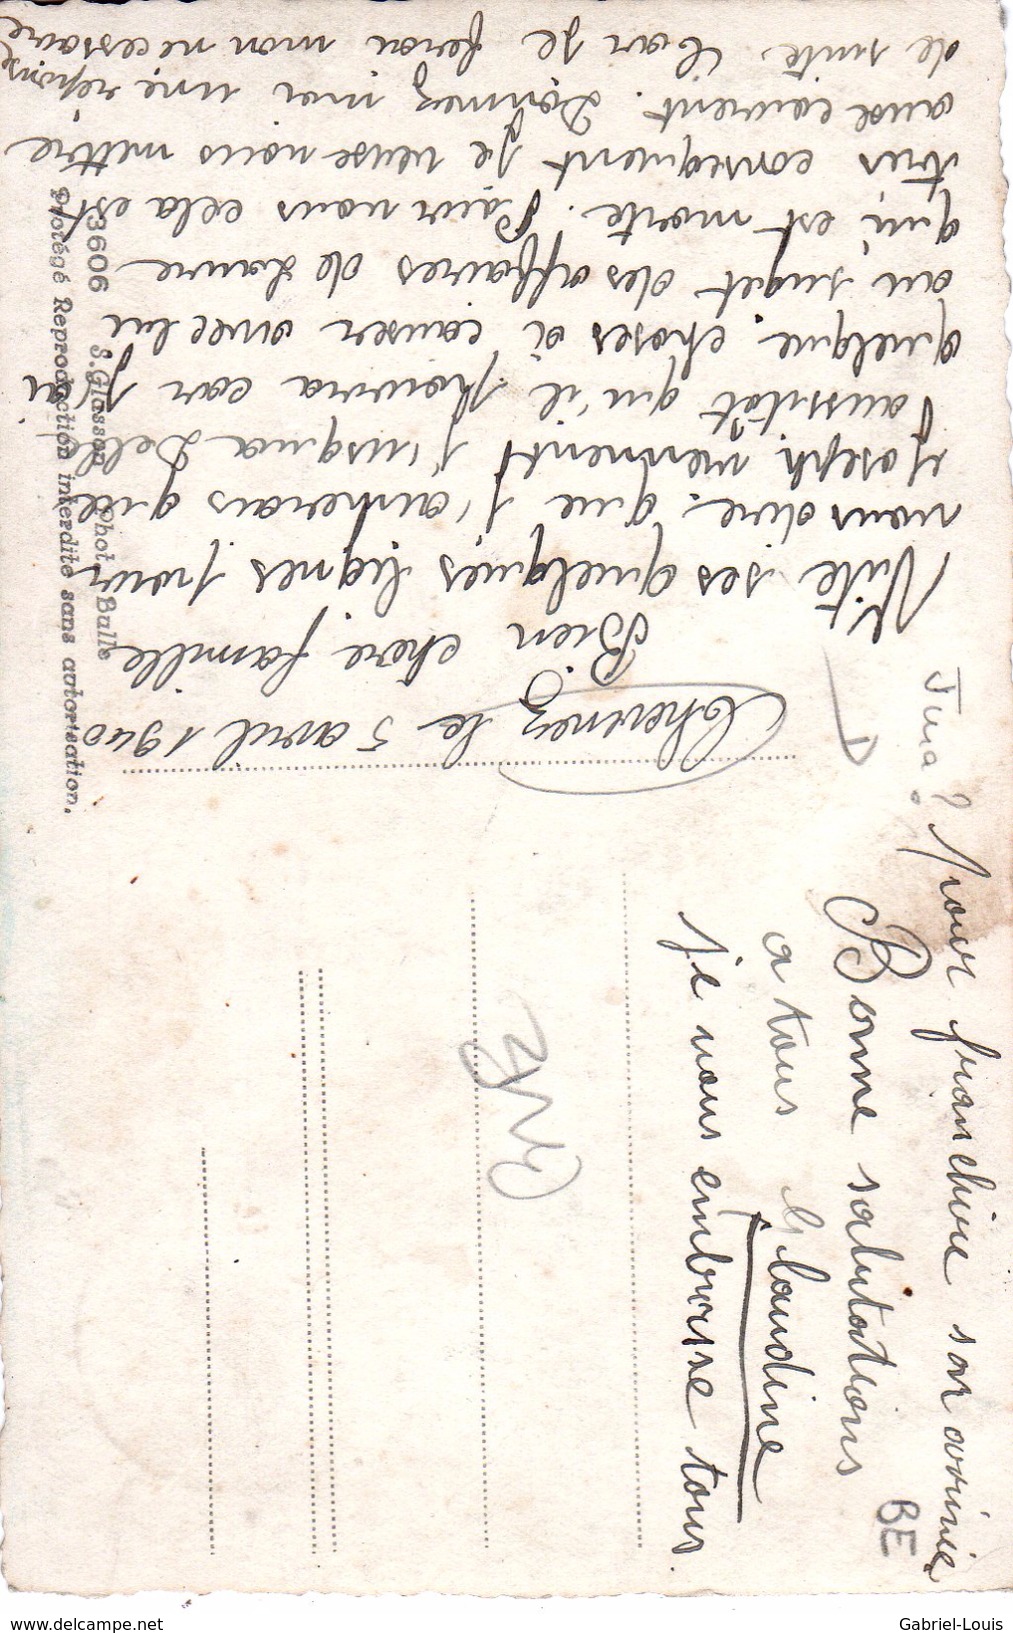 Chevenez le 5 avril 1940
Bien chère famille
Vite ses quelques lignes pour
vous dire que j'aimerais que
Joseph viennent j'usqua Delle
aussitôt qu'il pourra car j'ai
quelque choses à causer avec lui
au suget des affaires de Laure
qui est morte. Pour nous cela est
tres consequent je veuse nous mettre
ause courent. Donnez moi une reponse
de suite. Car je ferai mon necessaire
pour franchire son arrivée
Bonne salutations
a tous Claudine
je vous embrasse tous.
Jura ?
BE
3606 S. Glasson Phot. Bulle
Protégé Reproduction interdite sans autorisation.
www.delcampe.net
Gabriel-Louis